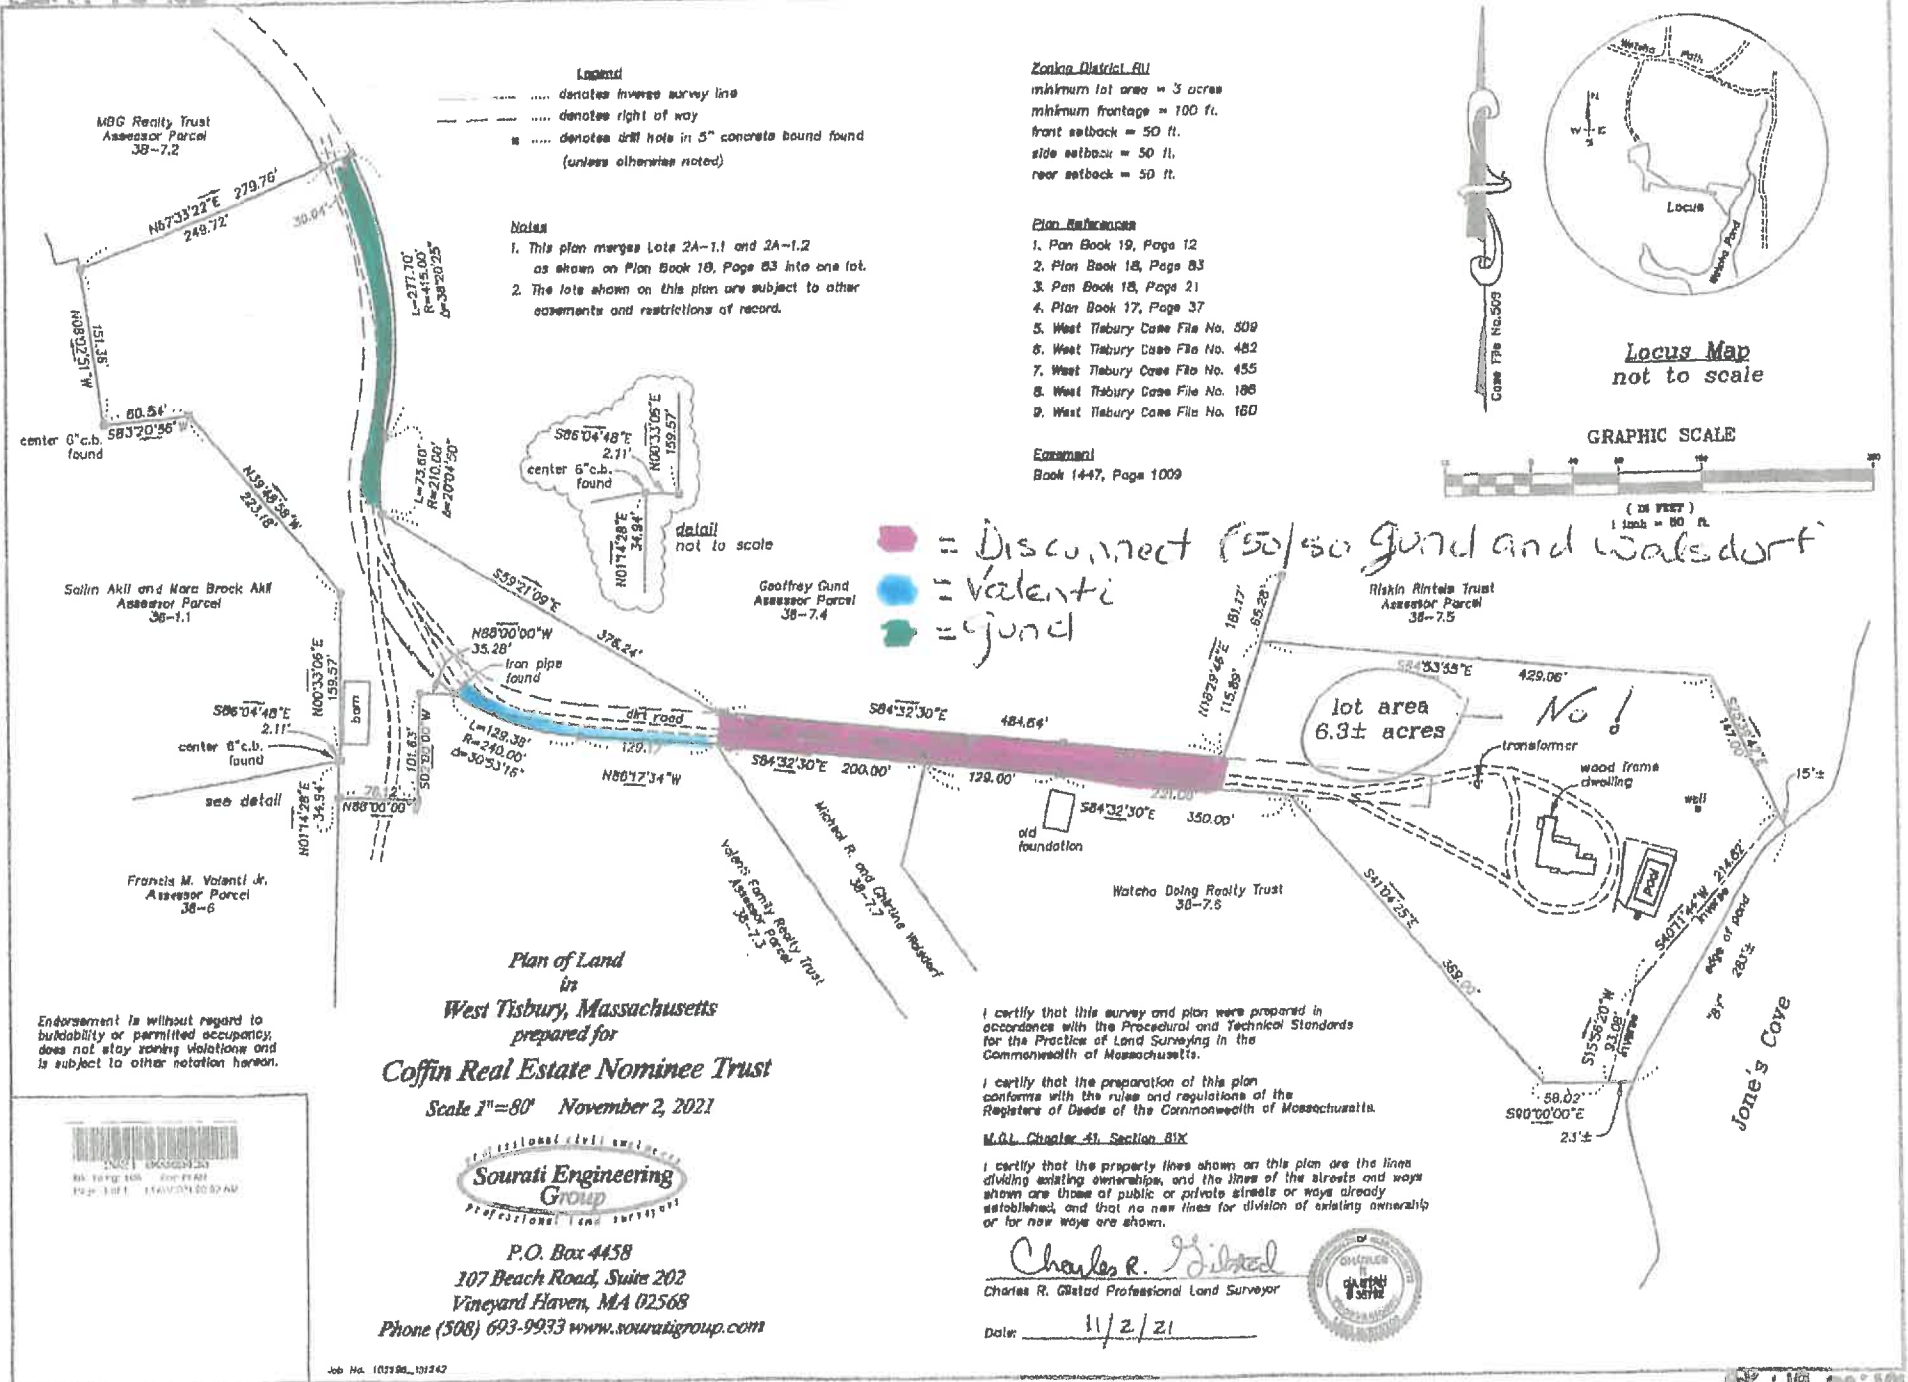 Legend
denotes inverse survey line
denotes right of way
denotes drill hole in 5" concrete bound found
(unless otherwise noted)
Notes
1. This plan merges Lots 2A-1.1 and 2A-1.2
as shown on Plan Book 18, Page 83 into one lot.
2. The lots shown on this plan are subject to other
easements and restrictions of record.
Zoning District RU
minimum lot area = 3 acres
minimum frontage = 100 ft.
front setback = 50 ft.
side setback = 50 ft.
rear setback = 50 ft.
Plan References
1. Pan Book 19, Page 12
2. Plan Book 18, Page 83
3. Pan Book 18, Page 21
4. Plan Book 17, Page 37
5. West Tisbury Case File No. 509
6. West Tisbury Case File No. 482
7. West Tisbury Case File No. 455
8. West Tisbury Case File No. 186
9. West Tisbury Case File No. 160
Easement
Book 1447, Page 1009
Case File No.509
Watcha Path
N
W E
S
Locus
Watcha Pond
Locus Map
not to scale
GRAPHIC SCALE
( IN FEET )
1 inch = 80 ft.
MBG Realty Trust
Assessor Parcel
38-7.2
N67°33'22"E 279.76'
249.72'
30.04'
L=277.70'
R=415.00'
Δ=38°20'25"
N08°02'51"W
151.36'
60.54'
S83°20'56"W
center 6"c.b.
found
N39°48'58"W
223.18'
L=73.60'
R=210.00'
Δ=20°04'50"
S86°04'48"E
2.11'
center 6"c.b.
found
N00°33'06"E
159.57'
N01°14'28"E
34.94'
detail
not to scale
= Disconnect (50/50 Gund and Walsdorf
= Valenti
= Gund
Geoffrey Gund
Assessor Parcel
38-7.4
Riskin Rintels Trust
Assessor Parcel
38-7.5
Assessor Parcel
38-1.1
S59°21'09"E
376.24'
N88°00'00"W
35.28'
iron pipe
found
dirt road
N00°33'06"E
159.57'
barn
S86°04'48"E
2.11'
center 6"c.b.
found
see detail
N01°14'28"E
34.94'
N88°00'00"
101.63'
S02°00'00"W
L=129.38'
R=240.00'
Δ=30°53'16"
129.17'
N86°17'34"W
S84°32'30"E
484.64'
S84°32'30"E 200.00'
129.00'
221.00'
S84°32'30"E 350.00'
old
foundation
N18°29'46"E 181.17'
115.89'
65.28'
S84°53'55"E 429.06'
lot area
6.3± acres
No!
transformer
wood frame
dwelling
well
pool
147.00'
15'±
S40°11'44"W 214.82'
inverse
edge of pond
283'±
"By"
S41°04'25"E
369.00'
S15°56'20"W
93.08'
inverse
58.02'
S90°00'00"E
23'±
Jone's Cove
Francis M. Valenti Jr.
Assessor Parcel
38-6
Valenti Family Realty Trust
Assessor Parcel
38-7.3
Michael R. and Christine Walsdorf
38-7.7
Watcha Doing Realty Trust
38-7.6
Endorsement is without regard to
buildability or permitted occupancy,
does not stay zoning violations and
is subject to other notation hereon.
Plan of Land
in
West Tisbury, Massachusetts
prepared for
Coffin Real Estate Nominee Trust
Scale 1"=80' November 2, 2021
professional civil engineers
Sourati Engineering
Group
professional land surveyors
P.O. Box 4458
107 Beach Road, Suite 202
Vineyard Haven, MA 02568
Phone (508) 693-9933 www.souratigroup.com
I certify that this survey and plan were prepared in
accordance with the Procedural and Technical Standards
for the Practice of Land Surveying in the
Commonwealth of Massachusetts.
I certify that the preparation of this plan
conforms with the rules and regulations of the
Registers of Deeds of the Commonwealth of Massachusetts.
M.G.L. Chapter 41, Section 81X
I certify that the property lines shown on this plan are the lines
dividing existing ownerships, and the lines of the streets and ways
shown are those of public or private streets or ways already
established, and that no new lines for division of existing ownership
or for new ways are shown.
Charles R. Gilstad
Charles R. Gilstad Professional Land Surveyor
Date: 11/2/21